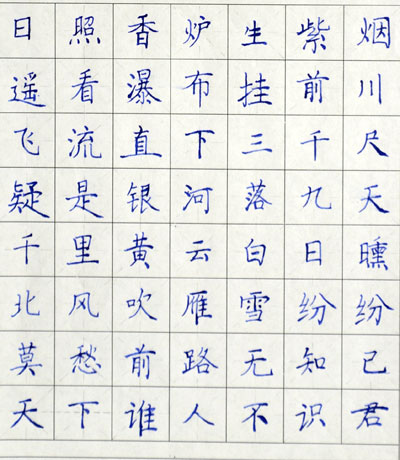 日照香炉生紫烟
遥看瀑布挂前川
飞流直下三千尺
疑是银河落九天
千里黄云白日曛
北风吹雁雪纷纷
莫愁前路无知己
天下谁人不识君